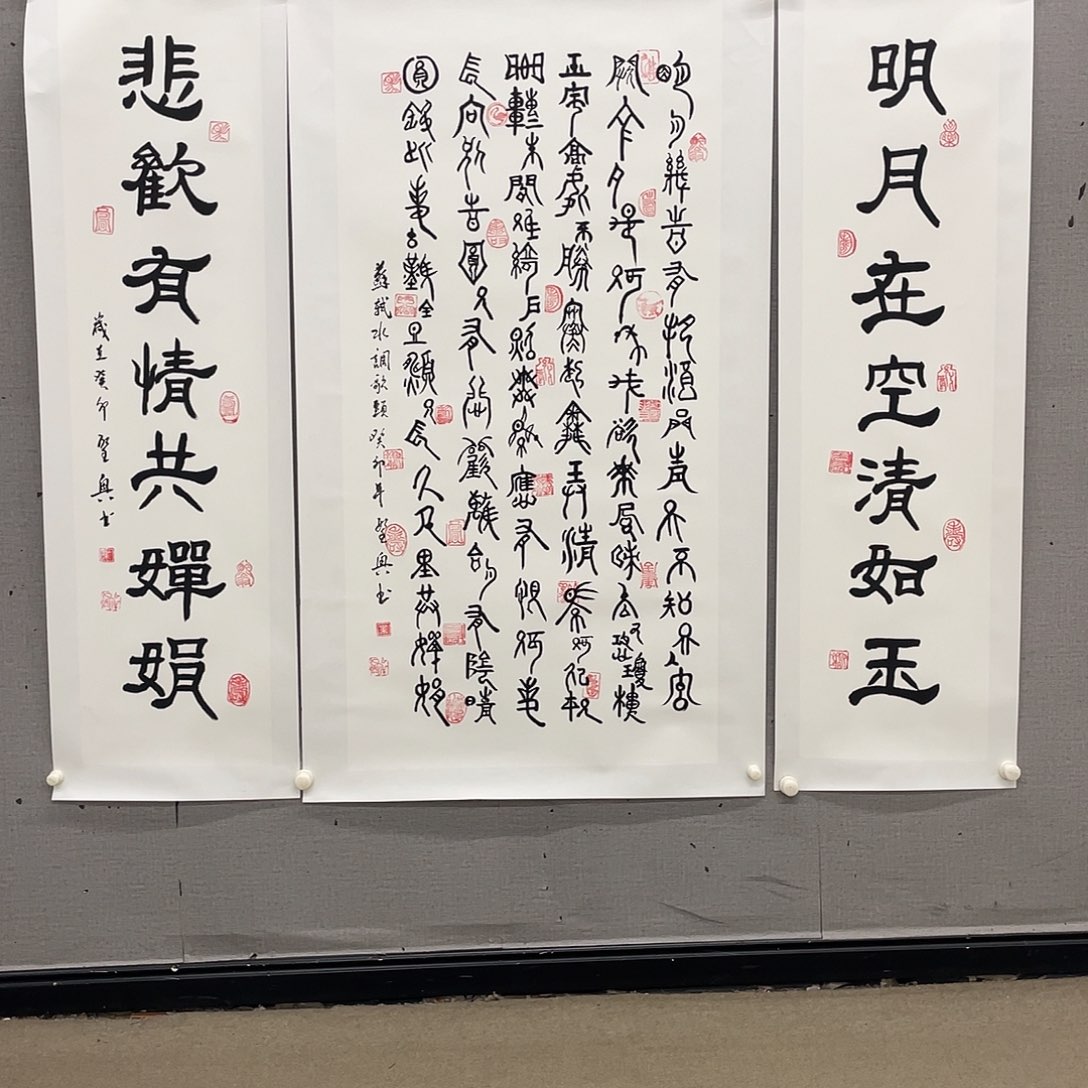 明月在空清如玉
明月幾時有把酒問青天不知天上宮
闕今夕是何年我欲乘風歸去又恐瓊樓
玉宇高處不勝寒起舞弄清影何似在人
間轉朱閣低綺戶照無眠不應有恨何事
長向別時圓人有悲歡離合月有陰晴
圓缺此事古難全但願人長久千里共嬋娟
蘇軾水調歌頭癸卯年興書
悲歡有情共嬋娟
歲在癸卯興書